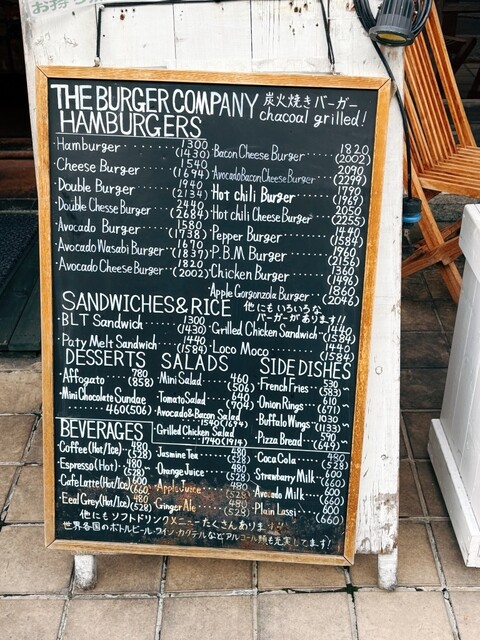 THE BURGER COMPANY 炭火焼きバーガー
chacoal grilled!
HAMBURGERS
Hamburger 1300
(1430)
Cheese Burger 1540
(1694)
Double Burger 1940
(2134)
Double Chesse Burger 2440
(2684)
Avocado Burger 1580
(1738)
Avocado Wasabi Burger 1670
(1837)
Avocado Cheese Burger 1820
(2002)
Bacon Cheese Burger 1820
(2002)
Avocado bacon Cheese Burger 2090
(2299)
Hot chili Burger 1790
(1969)
Hot chili Cheese Burger 2050
(2255)
Pepper Burger 1440
(1584)
P.B.M Burger 1960
(2156)
Chicken Burger 1360
(1496)
Apple Gorgonzola Burger 1860
(2046)
SANDWICHES&RICE 他にもいろいろな
バーガーがあります!!
BLT Sandwich 1300
(1430)
Paty Melt Sandwich 1440
(1584)
Grilled Chicken Sandwich 1440
(1584)
Loco Moco 1440
(1584)
DESSERTS
Affogato 780
(858)
Mini Chocolate Sundae
460(506)
SALADS
Mini Salad 460
(506)
Tomato Salad 640
(704)
Avocado&Bacon Salad
1540(1694)
Grilled Chicken Salad
1740(1914)
SIDE DISHES
French Fries 530
(583)~
Onion Rings 610
(671)
Buffalo Wings 1030
(1133)
Pizza Bread 590
(649)~
BEVERAGES
Coffee(Hot/Ice) 480
(528)
Espresso(Hot) 480
(528)
Cafe Latte(Hot/Ice) 600
(660)
Eeal Grey(Hot/Ice) 480
(528)
Jasmine Tea 480
(528)
Orange Juice 480
(528)
Apple Juice 480
(528)
Ginger Ale 480
(528)
Coca Cola 480
(528)
Strawberry Milk 600
(660)
Avocado Milk 600
(660)
Plain Lassi 600
(660)
他にもソフトドリンクメニューたくさんあります!!
世界各国のボトルビール・ワイン・カクテルなどアルコール類も充実してます!